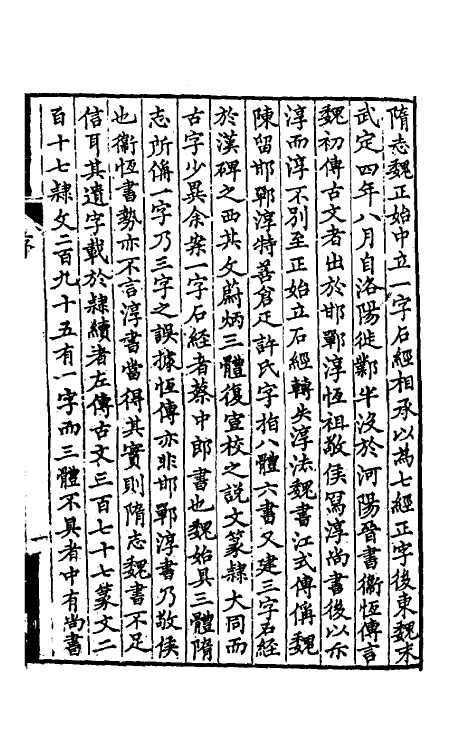 隋志魏正始中立一字石經相承以為七經正字後東魏末
武定四年八月自洛陽徙鄴半沒於河陽晉書衞恆傳言
魏初傳古文者出於邯鄲淳恆祖敬侯寫淳尚書後以示
淳而淳不別至正始立石經轉失淳法魏書江式傳偁魏
陳留邯鄲淳特善倉疋許氏字指八體六書又建三字石經
於漢碑之西其文蔚炳三體復宣校之說文篆隸大同而
古字少異余案一字石經者蔡中郎書也魏始具三體隋
志所偁一字乃三字之誤據恆傳亦非邯鄲淳書乃敬侯
也衞恆書勢亦不言淳書當得其實則隋志魏書不足
信耳其遺字載於隸續者左傳古文三百七十七篆文二
百十七隸文二百九十五有一字而三體不具者中有尚書
序
一